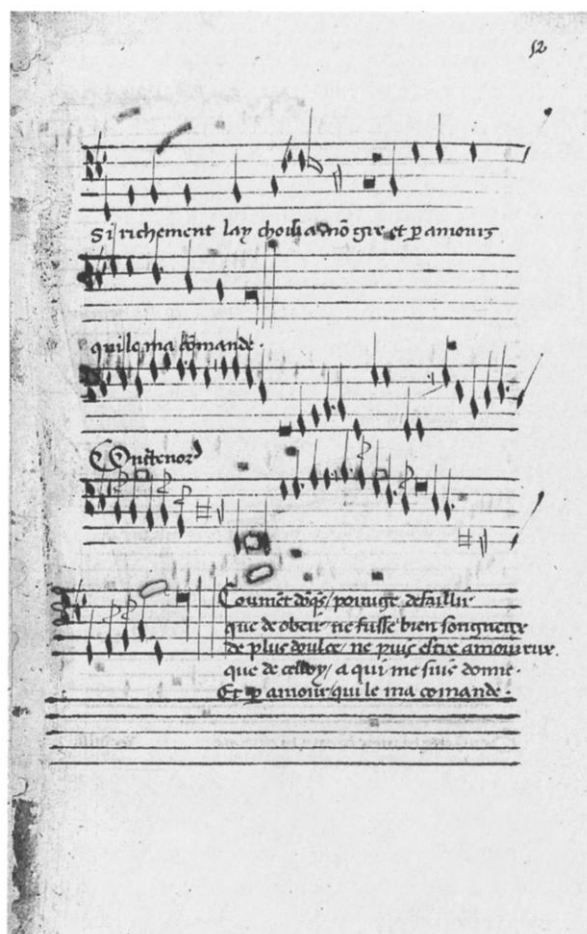 52
Si richement lay choisi a mõ gre et p amours
qui le ma cõmande .
Contenor
Comẽt dõqs / porroye defaillir
que de obeir / ne fusse bien songneux
de plus doulce / ne puis estre amoureux .
que de celluy / a qui me suis donne .
Et p amour / qui le ma comande .